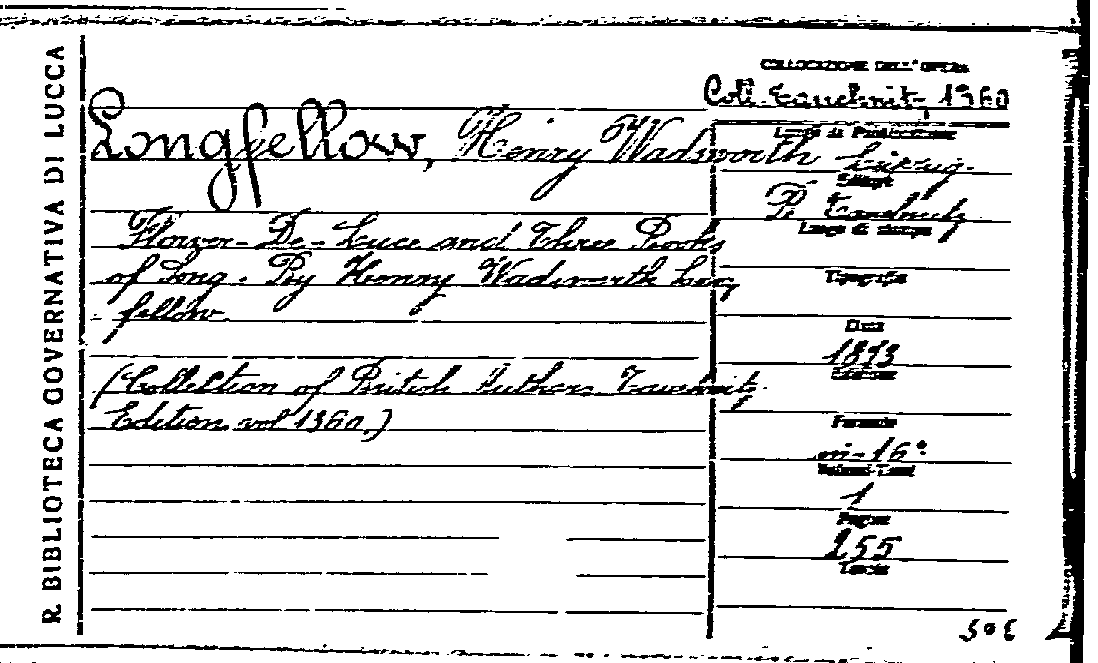 R. BIBLIOTECA GOVERNATIVA DI LUCCA
COLLOCAZIONE DELL'OPERA
Coll. Tauchnitz 1360
Longfellow, Henry Wadsworth
Flower-De-Luce and Three Books
of Song. By Henry Wadsworth Long
fellow.
(Collection of British Authors Tauchnitz
Edition vol 1360.)
Luogo di Pubblicazione
Leipzig.
Editore
B. Tauchnitz
Luogo di stampa
Tipografia
Data
1873
Edizione
Formato
in-16°
Volumi-Tomi
1
Pagine
255
Tavole